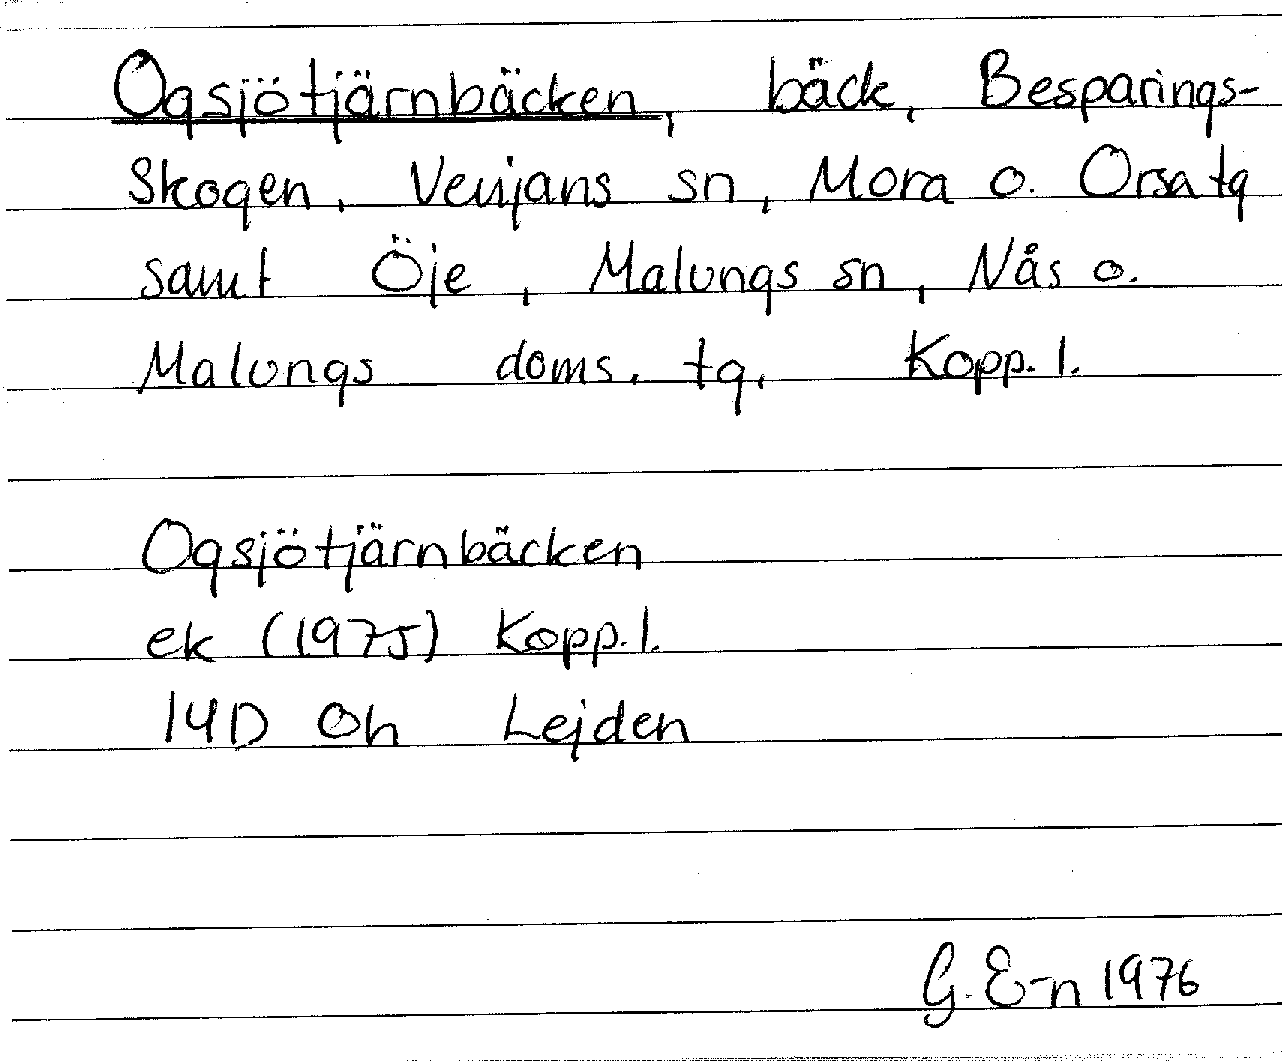 Ogsjötjärnbäcken, bäck, Besparings-
skogen, Venjans sn, Mora o. Orsa tg
samt Öje, Malungs sn, Nås o.
Malungs doms. tg. Kopp. l.
Ogsjötjärnbäcken
ek (1975) Kopp. l.
14D Oh Lejden
G. E-n 1976